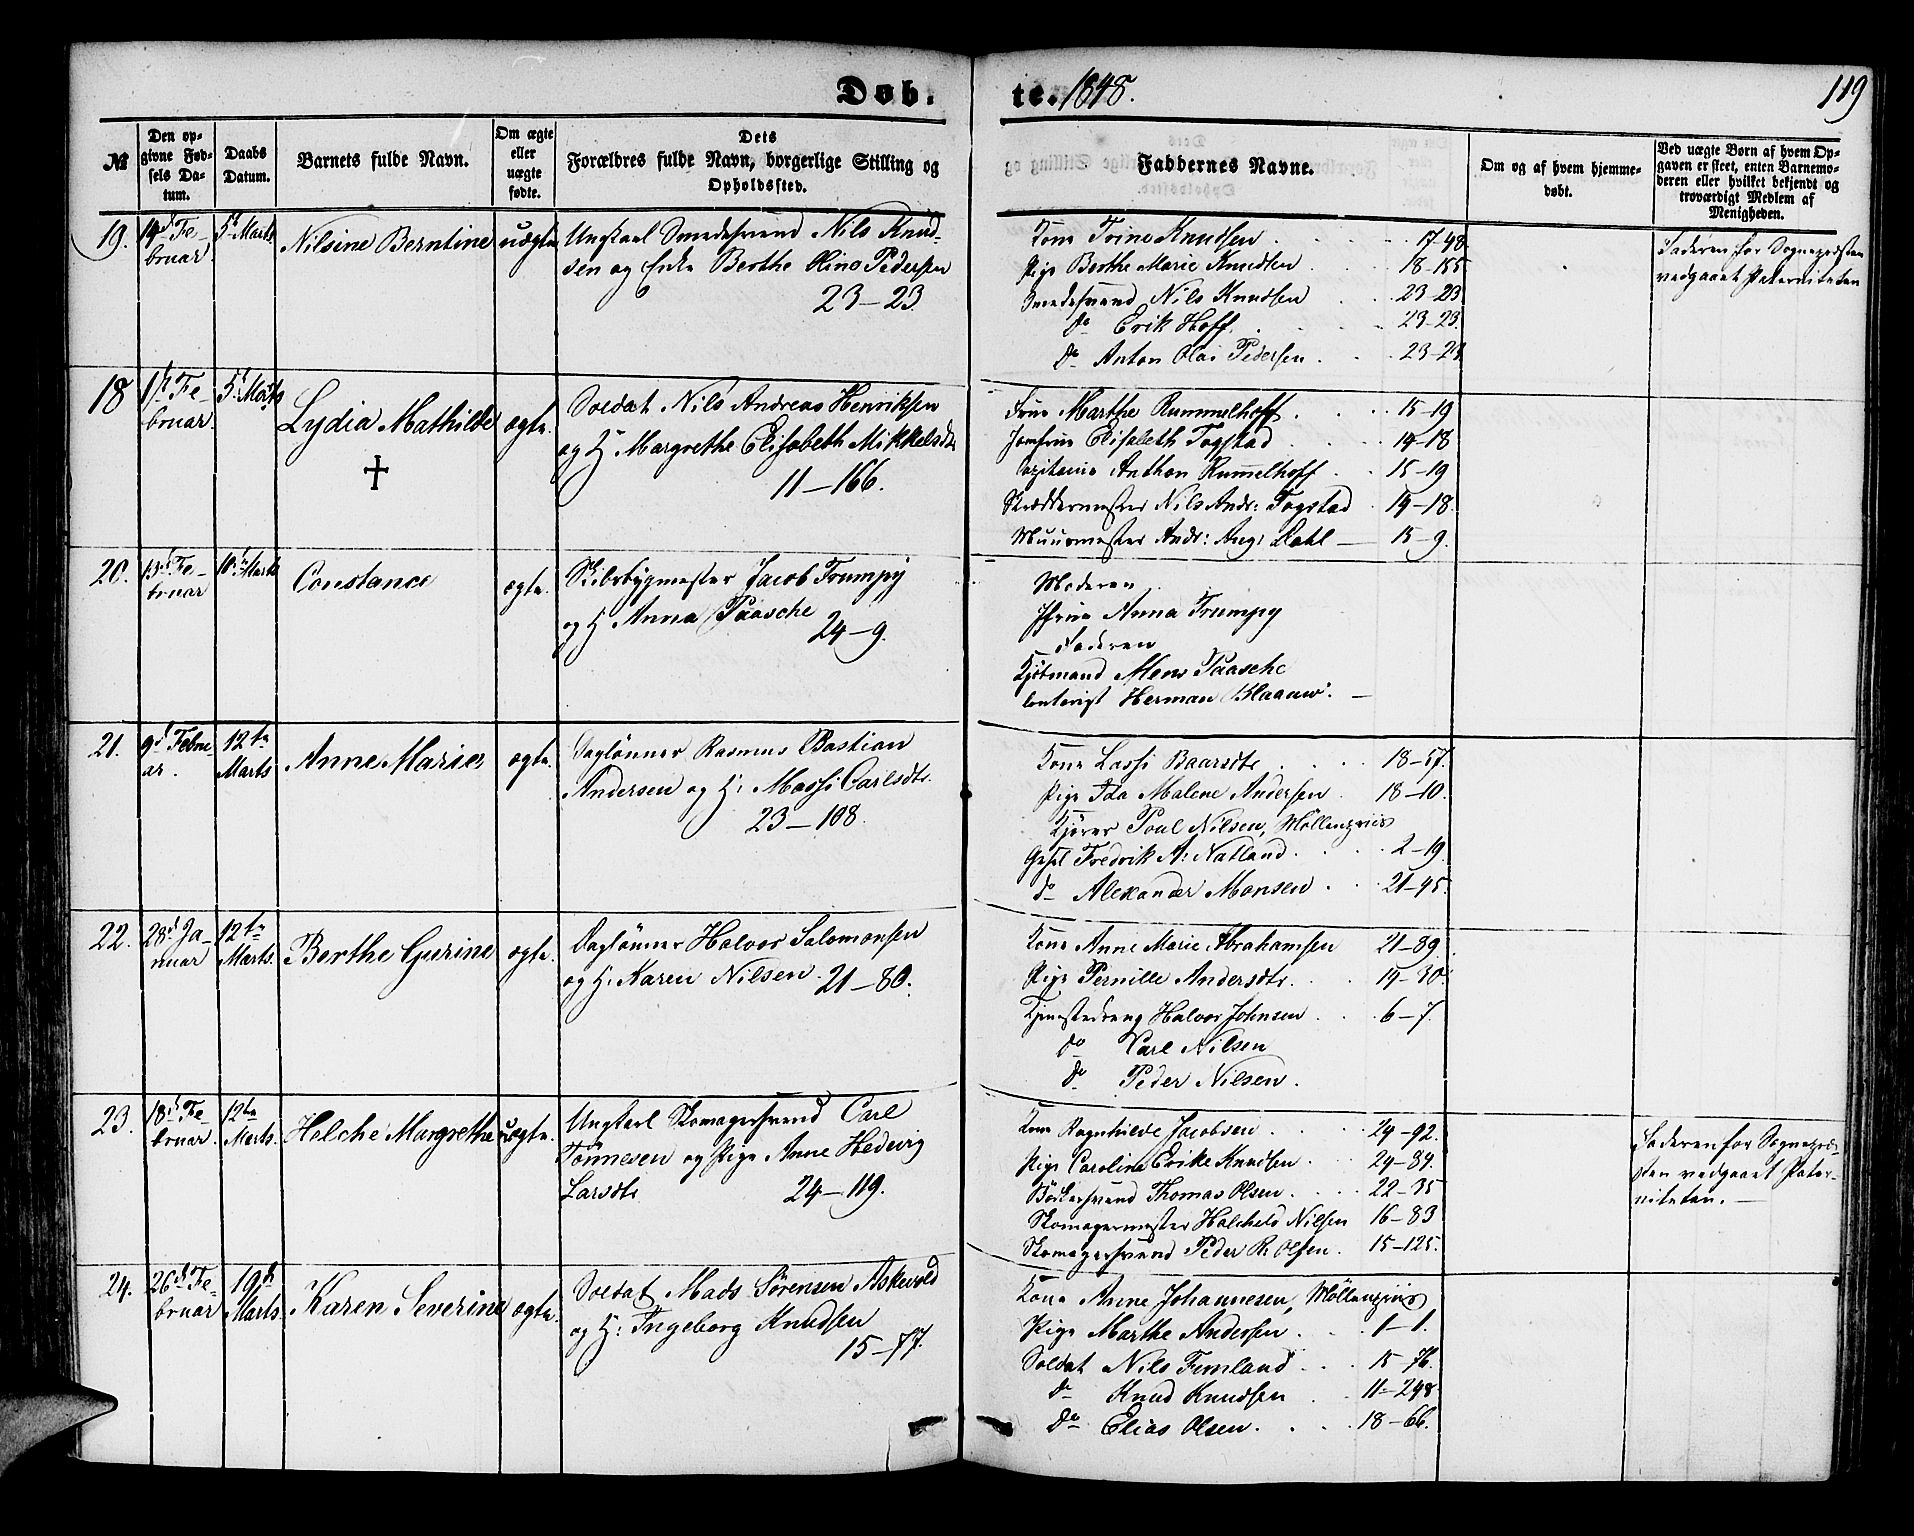 Døb.
te. 1848.
119
№
Den opgivne Fødsels Datum.
Daabs Datum.
Barnets fulde Navn.
Om ægte eller uægte fødte.
Dets Forældres fulde Navn, borgerlige Stilling og Opholdssted.
Faddernes Navne.
Om og af hvem hjemmedøbt.
Ved uægte Børn af hvem Opgaven er skeet, enten Barnemoderen eller hvilket bekjendt og troværdigt Medlem af Menigheden.
19.
14d Februar
5t Marts
Nilsine Berntine
uægte
Ungkarl Smedesvend Nils Knud-
sen og Enke Berthe Oline Pedersen
23–23.
Kone Trine Knudsen 17–48
Pige Berthe Marie Knudsen 18–155
Smedesvend Nils Knudsen 23–23
do Erik Hoff 23–23.
do Anton Olai Pedersen 23–23
Faderen for Sognepræsten
vedgaaet Paterniteten
18
1st Februar
5t Marts
Lydia Mathilde
ægte.
Soldat Nils Andreas Henriksen
og H. Margrethe Elisabeth Mikkelsdtr
11–166.
Frue Marthe Rummelhoff 15–19
Jomfrue Elisabeth Togstad 14–18
Capitaine Anthon Rummelhoff 15–19
Skræddermester Nils Andr: Togstad 14–18.
Muurmester Andr: Aug: Dahl — 15–9.
20.
13d Februar
10de Marts
Constance
ægte.
Skibsbygmester Jacob Trumpy
og H. Anna Paasche
24–9.
Moderen
Jfrue Anna Trumpy
Faderen
Kjøbmand Mens Paasche
Contorist Herman Blaauw. —
21.
9d Februar.
12te Marts
Anne Marie
ægte.
Daglønner Rasmus Bastian
Andersen og H: Massi Carlsdtr.
23–108.
Kone Lassi Baarsdtr 18–57.
Pige Ida Malene Andersen 18–10.
Kjører Poul Nilsen, Möllenpriis
Gesel Fredrik A: Natland 2–19.
do Alexander Monsen 21–45.
22.
28d Januar
12te Marts.
Berthe Gurine
ægte.
Daglønner Halvor Salomonsen
og H: Karen Nilsen 21–80.
Kone Anne Marie Abrahamsen 21–89.
Pige Pernille Andersdtr. 19–30.
Tjenestedreng Halvor Johnsen 6–7.
do Carl Nilsen
do Peder Nilsen.
23.
18d Februar.
12te Marts.
Helche Margrethe
uægte.
Ungkarl Skomagersvend Carl
Tönnesen og Pige Anne Hedevig
Larsdtr. 24–119.
Kone Ragnhilde Jacobsen 24–92.
Pige Caroline Erike Knudsen 24–84.
Bödkersvend Thomas Olsen 22–35
Skomagermester Halcheld Nilsen 16–83
Skomagersvend Peder R. Olsen 15–125.
Faderen for Sognepræ-
sten vedgaaet Pater-
niteten. —
24.
26d Februar
19d Marts.
Karen Severine
ægte.
Soldat Mads Sörensen Askevold
og H: Ingeborg Knudsen
15–77.
Kone Anne Johannesen, Möllenpriis
Pige Marthe Andersen 1–1.
Soldat Nils Femland 15–76.
do Knud Knudsen 11–248.
do Elias Olsen 18–66.